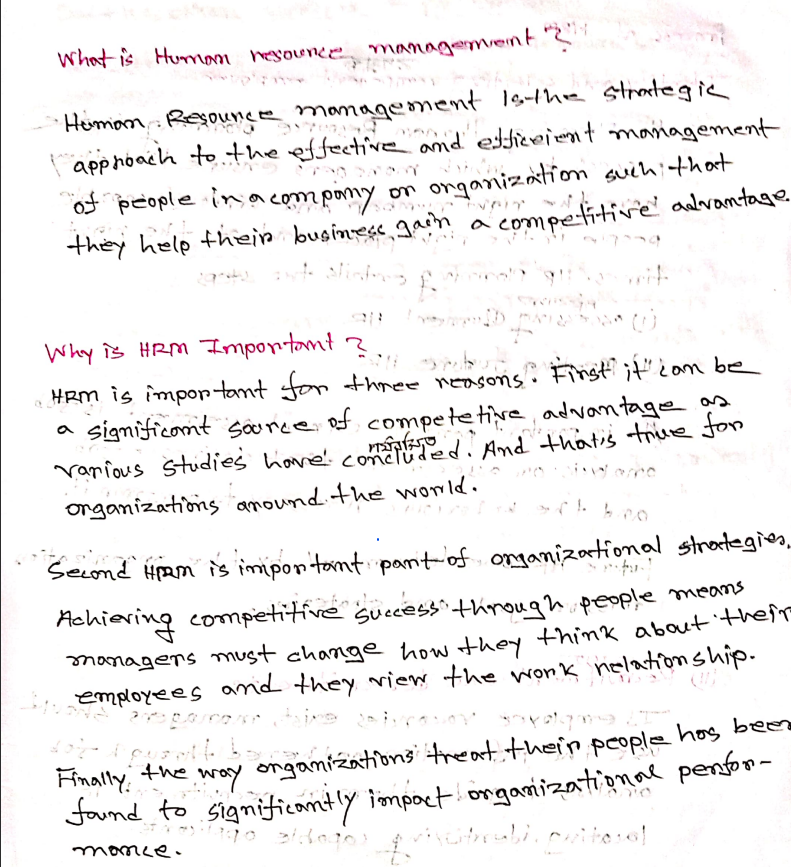 What is Human resource management?
Human Resource management Is the strategic
approach to the effective and efficeient management
of people in a company or organization such that
they help their business gain a competitive advantage.
Why is HRM Important?
HRM is important for three reasons. First it can be
a significant source of competetive advantage as
various studies have concluded. And that's true for
organizations around the world.
Second HRM is important part of organizational strategies.
Achieving competitive success through people means
managers must change how they think about their
employees and they view the work relationship.
Finally, the way organizations treat their people has been
found to significantly impact organizational perfor-
mance.